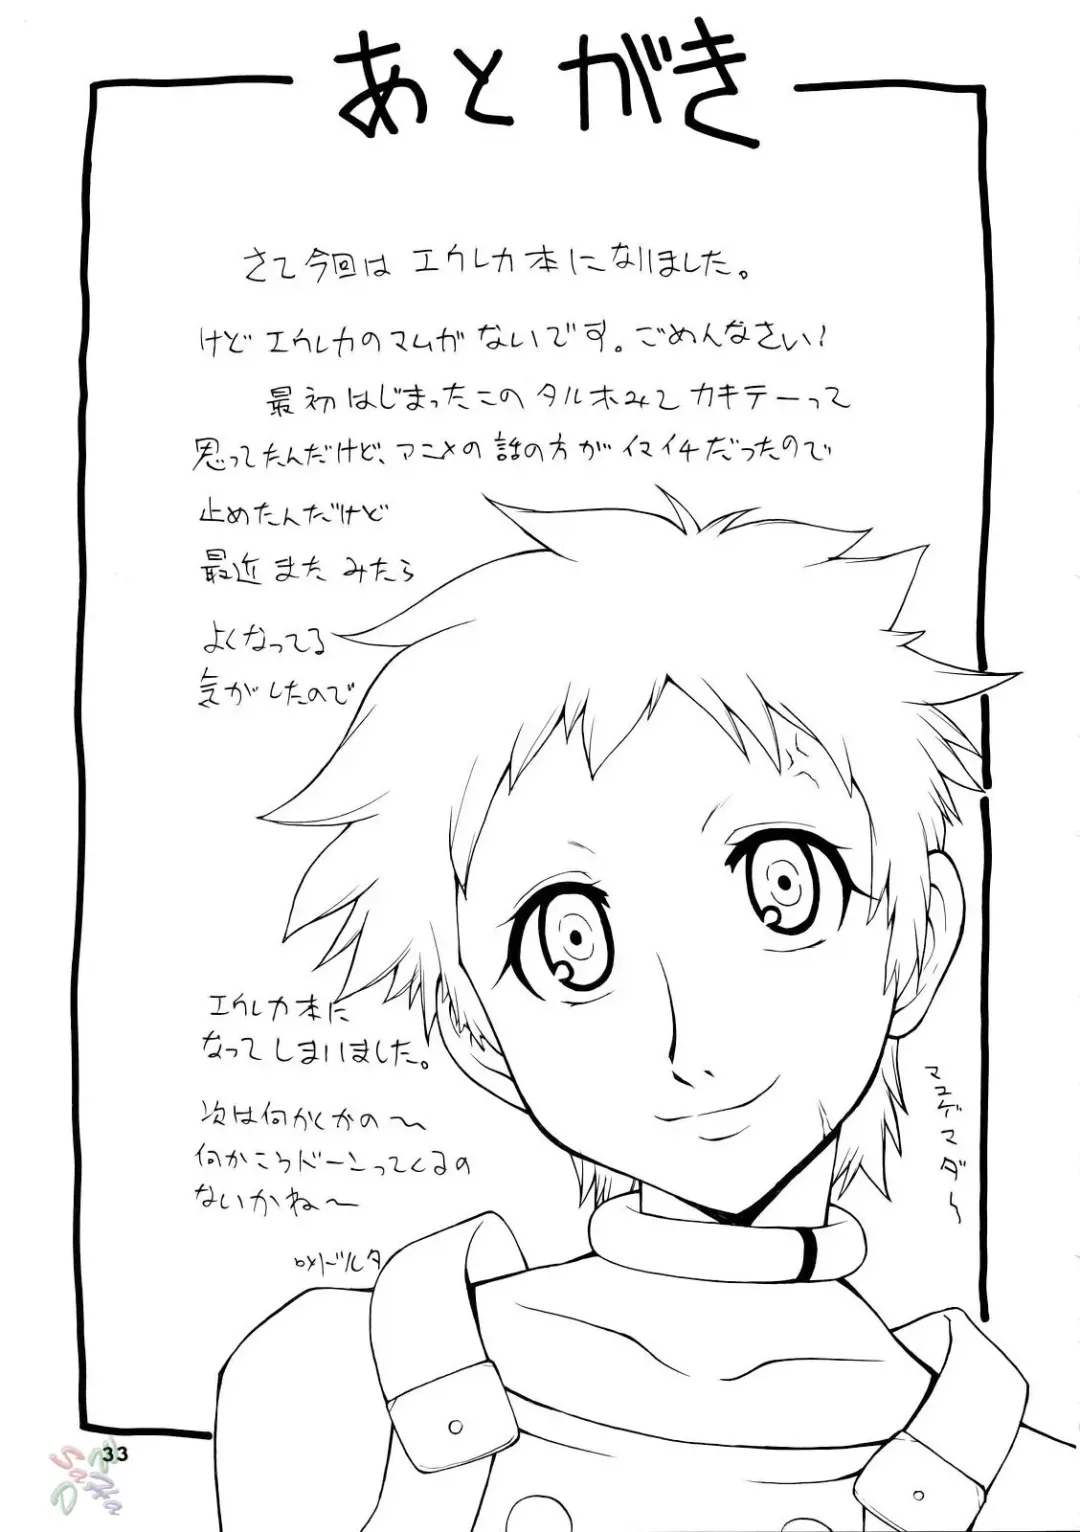 あとがき
さて今回は エウレカ本になりました。
けどエウレカのマムがないです。ごめんなさい!
最初はじまったこのタルホみて カキテーって
思ってたんだけど、アニメの話の方がイマイチだったので
止めたんだけど
最近 また みたら
よくなってる
気がしたので
エウレカ本に
なってしまいました。
次は何かくかの〜
何かころドーンってくるの
ないかね〜
マユゲマダ〜
33